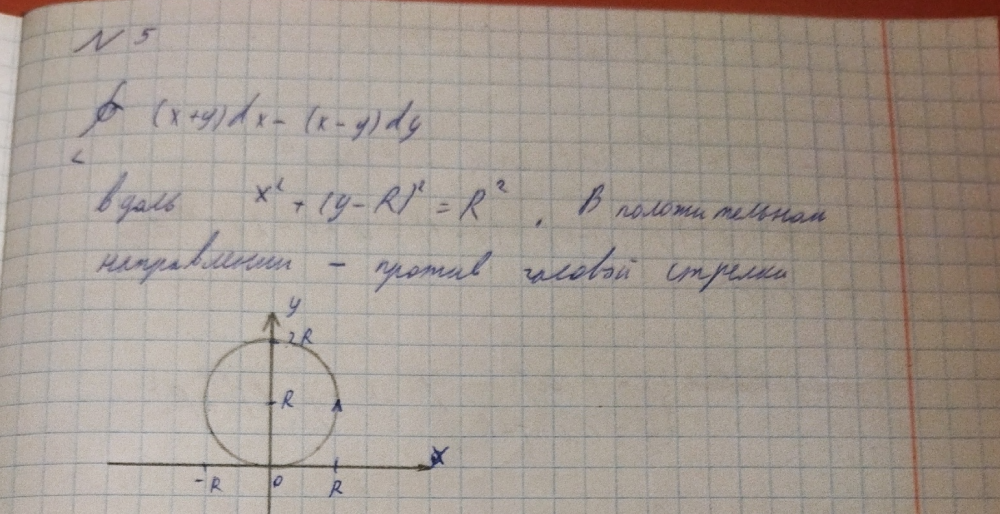 N 5
∮ (x+y)dx - (x-y)dy
L
вдоль x² + (y-R)² = R². В положительном
направлении - против часовой стрелки
y
2R
R
x
-R 0 R